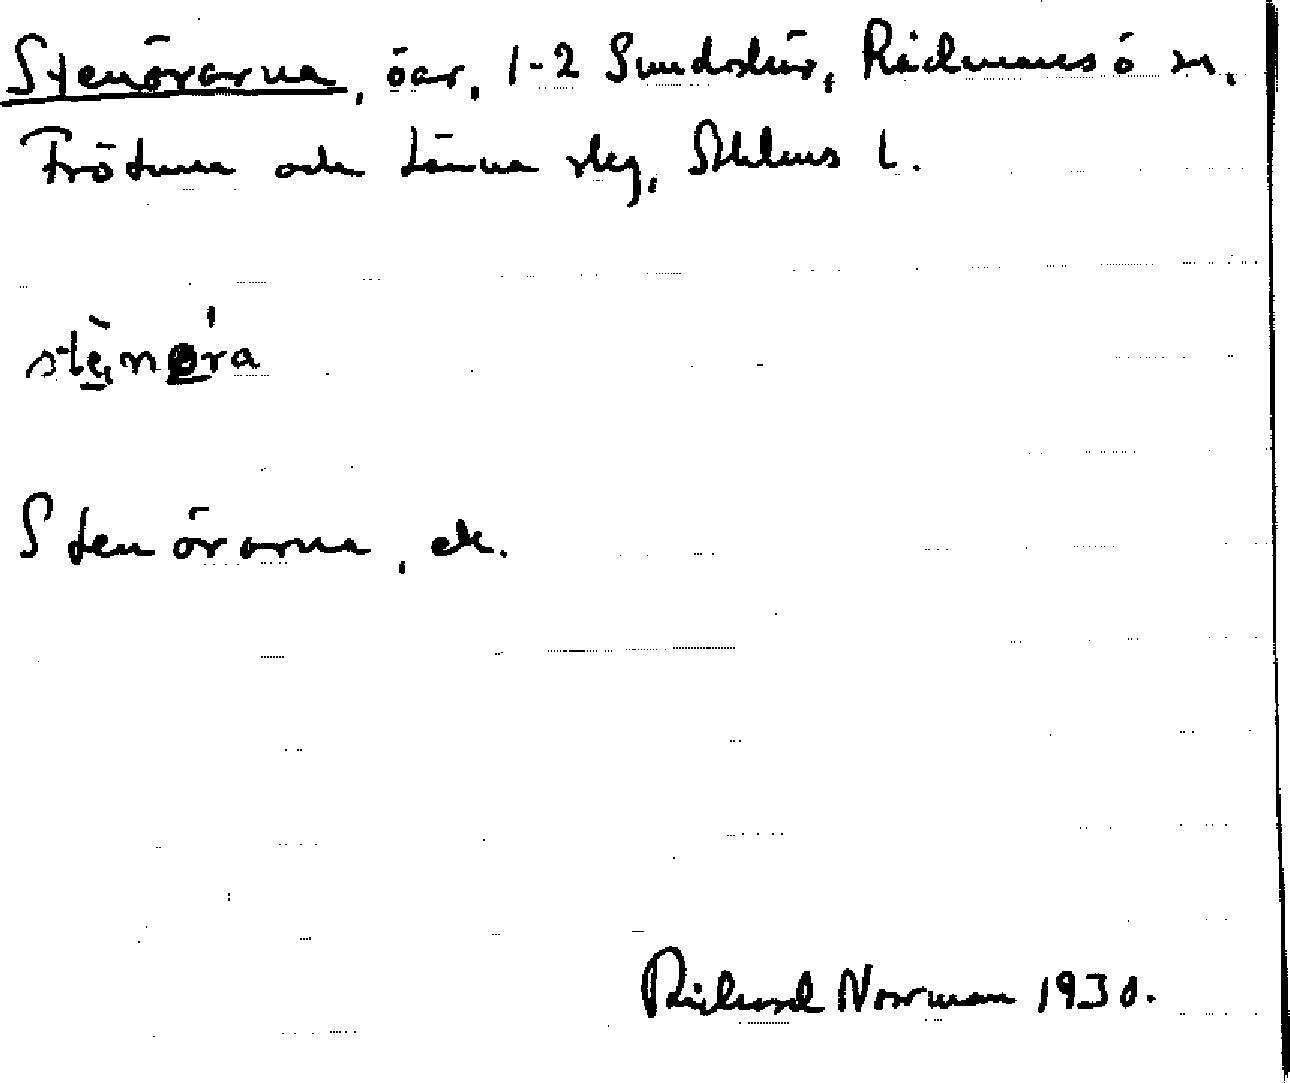 Stenörarna, öar, 1-2 Sundskär, Rådmansö sn.
Frötuna och Länna slg, Sthlms l.
stenöra
Stenörarna, ek.
Richard Norrman 1930.